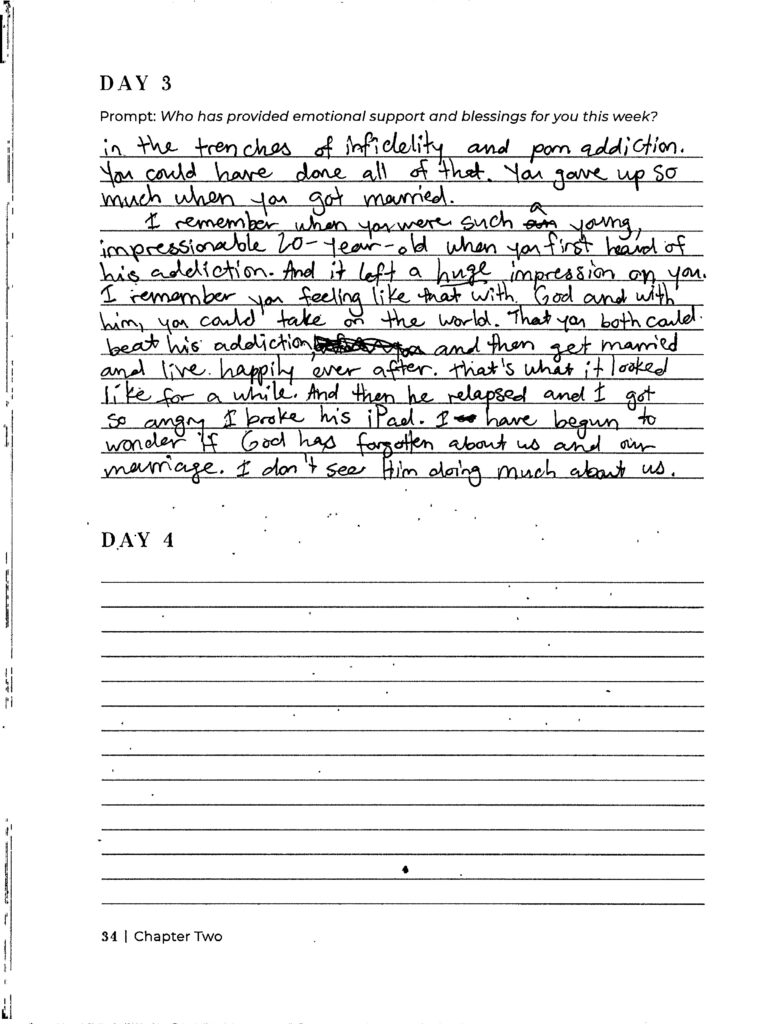 DAY 3
Prompt: Who has provided emotional support and blessings for you this week?
in the trenches of infidelity and porn addiction.
You could have done all of that. You gave up so
much when you got married.
I remember when you were such a young,
impressionable 20-year-old when you first heard of
his addiction. And it left a huge impression on you.
I remember you feeling like that with God and with
him, you could take on the world. That you both could
beat his addiction, and then get married
and live happily ever after. That's what it looked
like for a while. And then he relapsed and I got
so angry I broke his iPad. I have begun to
wonder if God has forgotten about us and our
marriage. I don't see Him doing much about us.
DAY 4
34 | Chapter Two